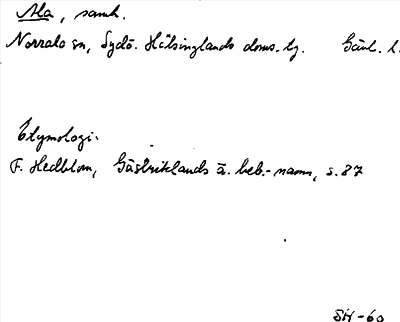 Ala, samh.
Norrala sn, Sydö. Hälsinglands doms.-bg. Gävl. l.
Etymologi.
F. Hedblom, Gästriklands ä. beb.-namn, s. 87
SH-60